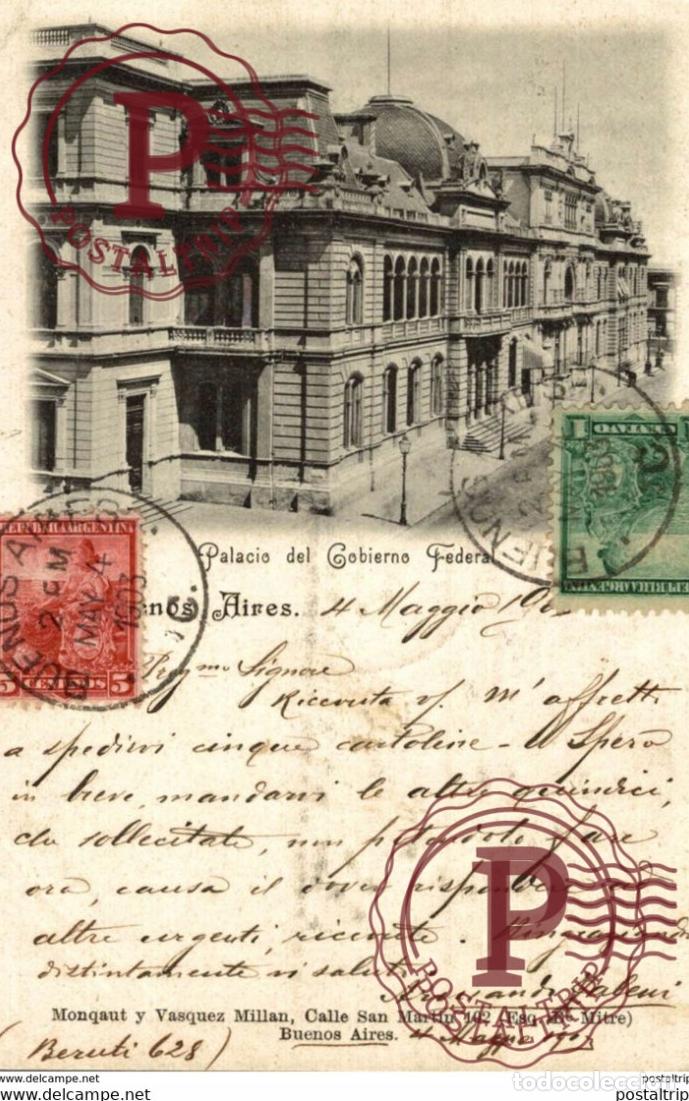 P
POSTALTRIP
Palacio del Gobierno Federal
Buenos Aires. 4 Maggio 190
1
CENTAVO
REPUBLICA ARGENTINA
BUENOS AIRES
1903
REPUBLICA ARGENTINA
5 CENTAVOS 5
BUENOS AIRES
2 PM
MAY 4
1903
Preg.mo Signore
Ricevuta v/. m'affretto
a spedirvi cinque cartoline - Spero
in breve, mandarvi le altre quindici,
da sollecitate, non potendolo fare
ora, causa il dover rispondere ad
altre urgenti, ricevute.
distintamente vi saluto
P
POSTALTRIP
Monqaut y Vasquez Millan, Calle San Martin 102 (Esq. Bº Mitre)
Buenos Aires. 4 Maggio 1903
(Beruti 628)
www.delcampe.net
postaltrip
todocoleccion
www.delcampe.net
postaltrip